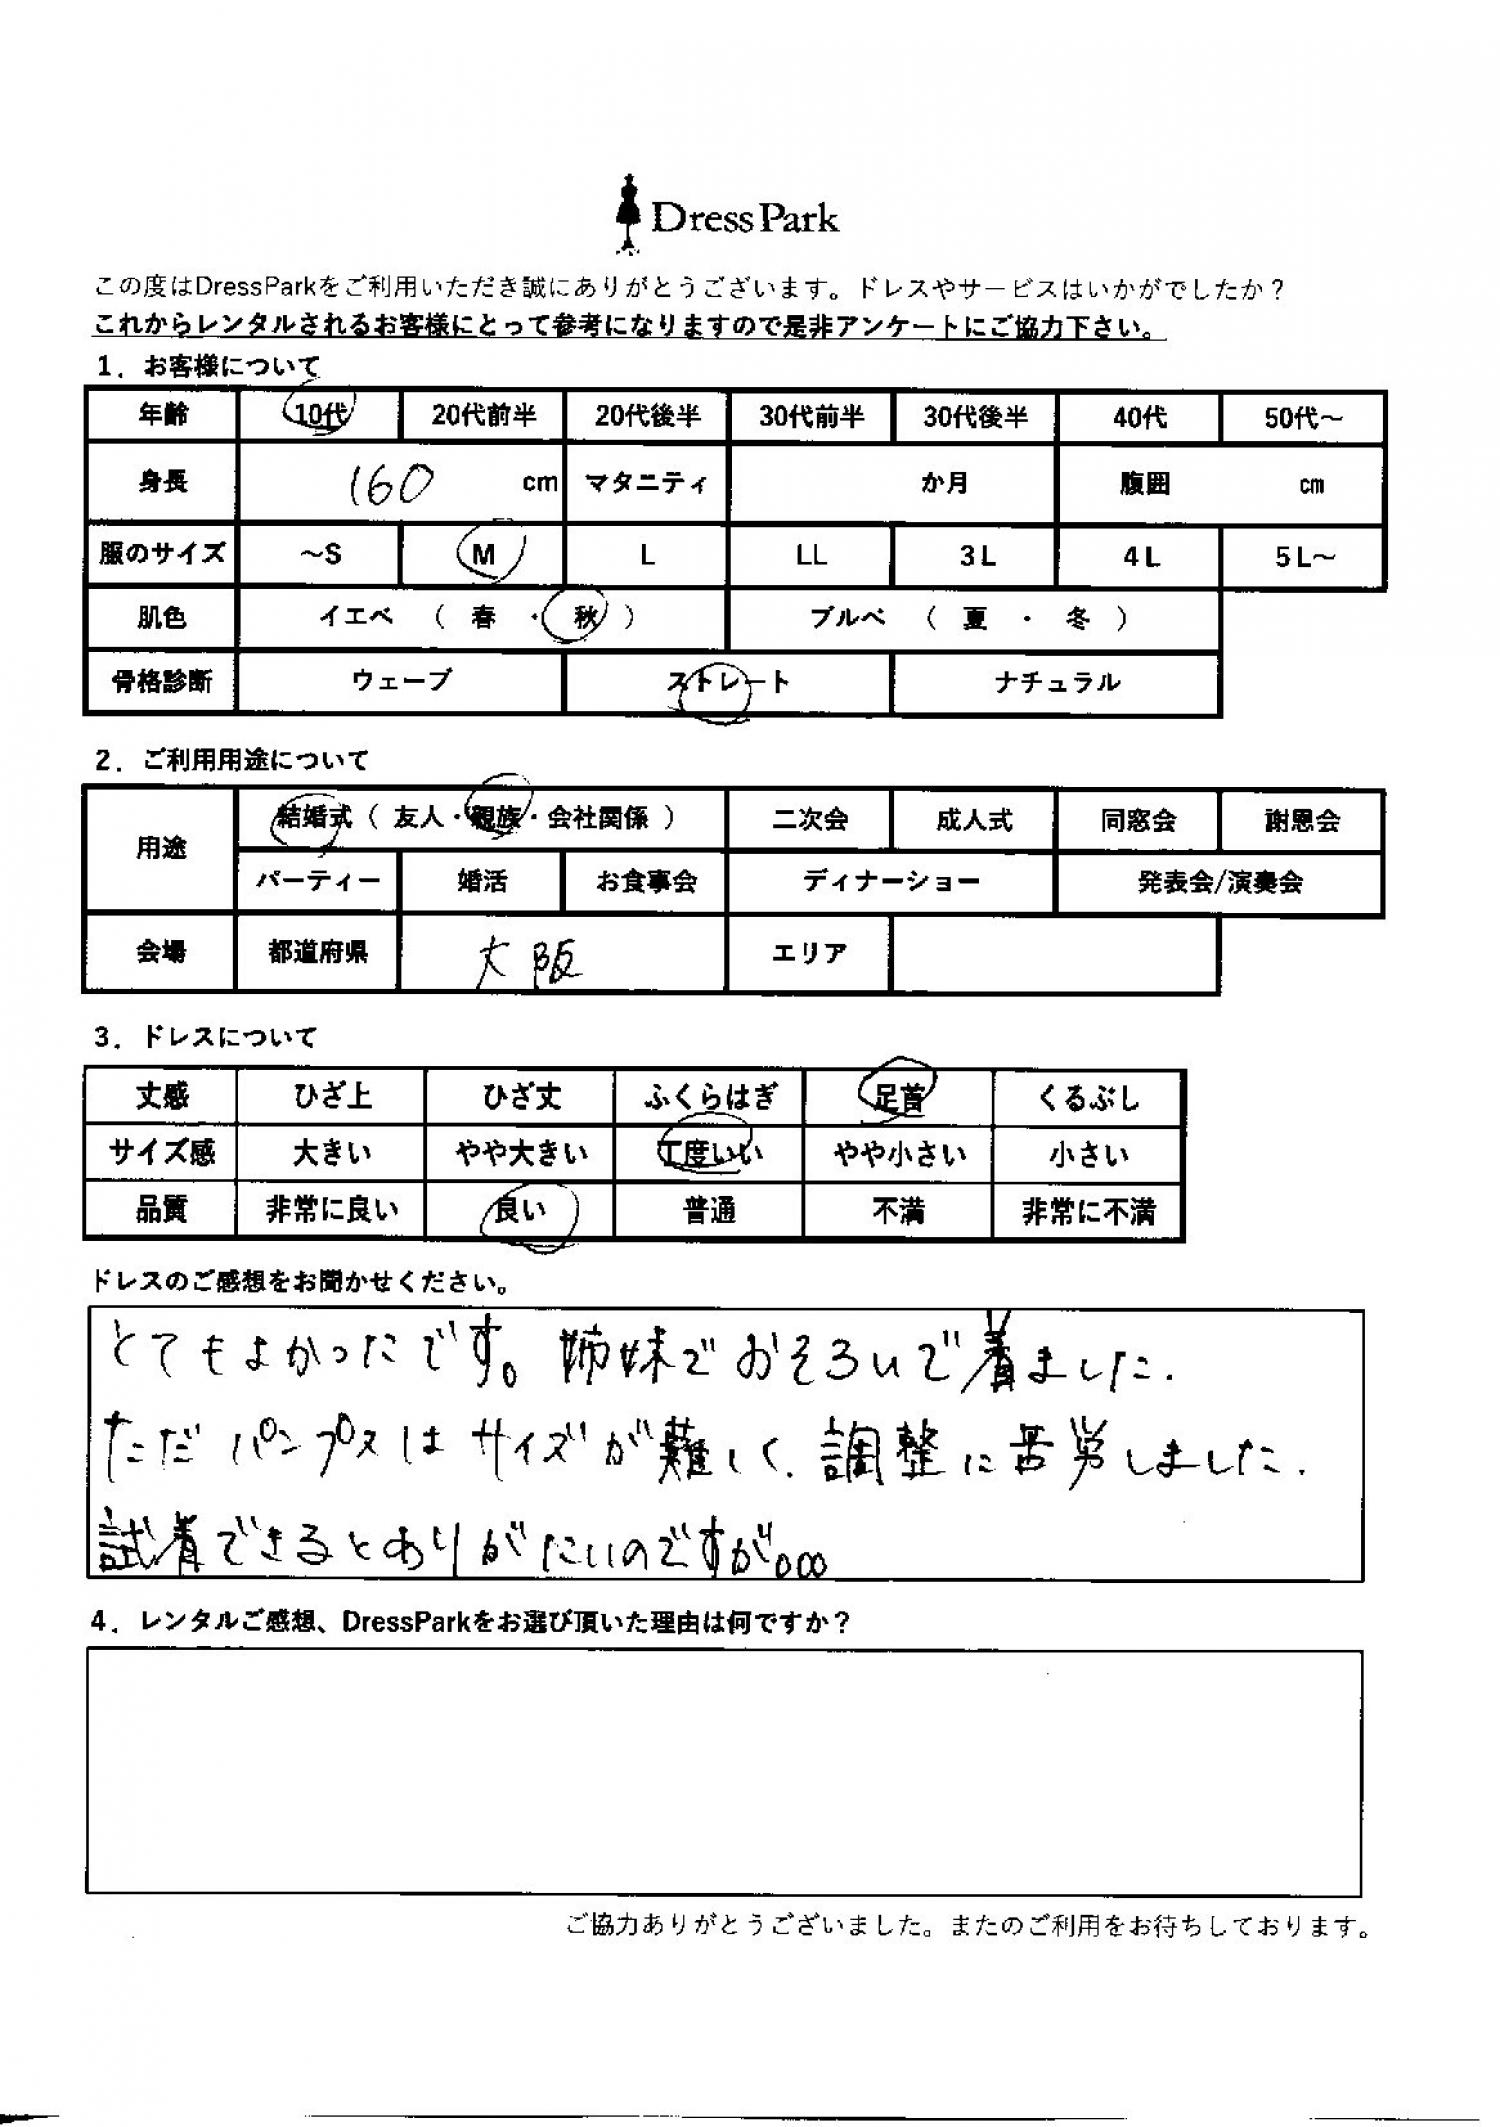 Dress Park
この度はDressParkをご利用いただき誠にありがとうございます。ドレスやサービスはいかがでしたか？
これからレンタルされるお客様にとって参考になりますので是非アンケートにご協力下さい。
1．お客様について
年齢 10代 20代前半 20代後半 30代前半 30代後半 40代 50代～
身長 160 cm マタニティ か月 腹囲 cm
服のサイズ ～S M L LL 3L 4L 5L～
肌色 イエベ （ 春 ・ 秋 ） ブルベ （ 夏 ・ 冬 ）
骨格診断 ウェーブ ストレート ナチュラル
2．ご利用用途について
用途 結婚式（ 友人・親族・会社関係 ） 二次会 成人式 同窓会 謝恩会
パーティー 婚活 お食事会 ディナーショー 発表会/演奏会
会場 都道府県 大阪 エリア
3．ドレスについて
丈感 ひざ上 ひざ丈 ふくらはぎ 足首 くるぶし
サイズ感 大きい やや大きい 丁度いい やや小さい 小さい
品質 非常に良い 良い 普通 不満 非常に不満
ドレスのご感想をお聞かせください。
とてもよかったです。姉妹でおそろいで着ました.
ただパンプスはサイズが難しく、調整に苦労しました.
試着できるとありがたいのですが。。。
4．レンタルご感想、DressParkをお選び頂いた理由は何ですか？
ご協力ありがとうございました。またのご利用をお待ちしております。